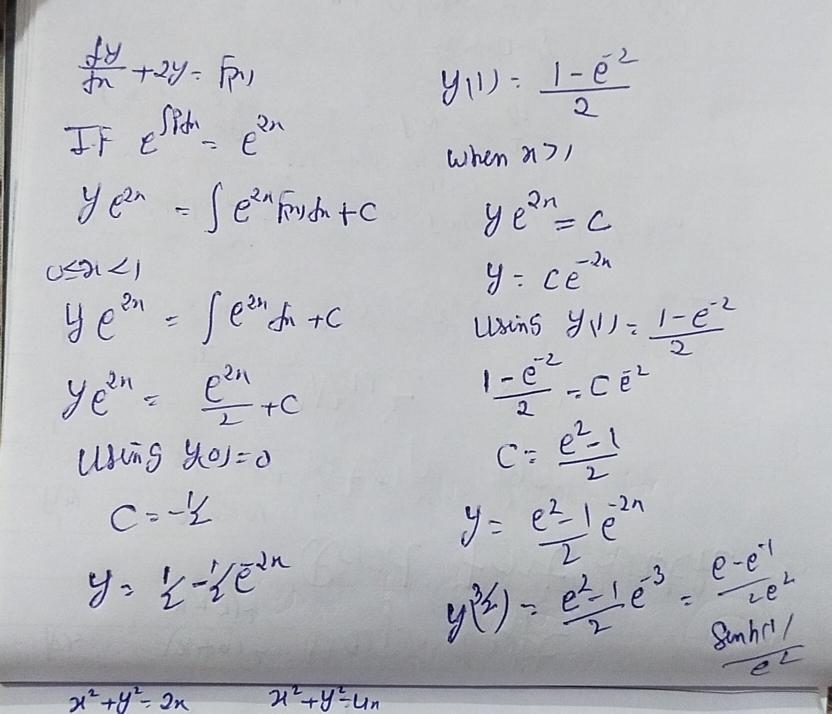 dy/dx + 2y = F(x)
IF e^∫Pdx = e^2x
y e^2x = ∫ e^2x F(x) dx + C
0≤x<1
y e^2x = ∫ e^2x dx + C
y e^2x = e^2x/2 + C
Using y(0)=0
C = -1/2
y = 1/2 - 1/2 e^-2x
y(1) = (1 - e^-2)/2
When x>1
y e^2x = C
y = C e^-2x
Using y(1) = (1 - e^-2)/2
(1 - e^-2)/2 = C e^-2
C = (e^2 - 1)/2
y = (e^2 - 1)/2 e^-2x
y(3/2) = (e^2 - 1)/2 e^-3 = (e - e^-1)/2e^2
Sinh(1)/e^2
x^2 + y^2 = 2x x^2 + y^2 = 4x